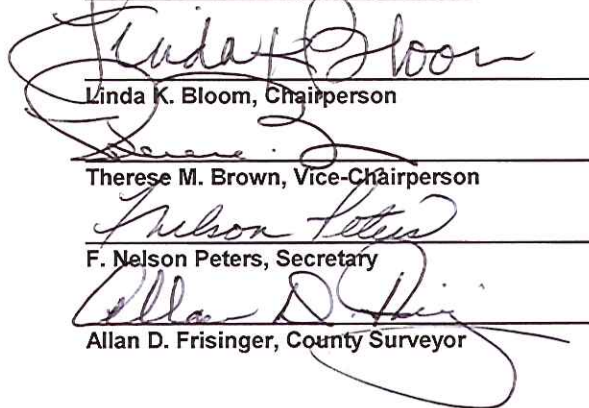 Linda K Bloom
Linda K. Bloom, Chairperson
Therese M. Brown, Vice-Chairperson
F Nelson Peters
F. Nelson Peters, Secretary
Allan D.
Allan D. Frisinger, County Surveyor